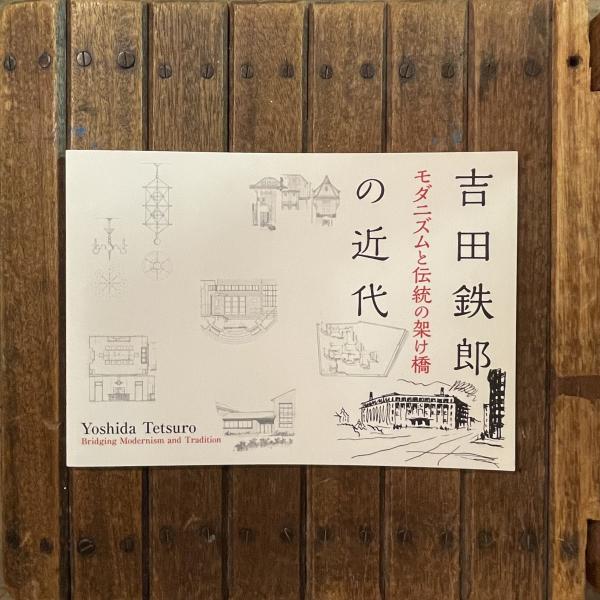 吉田鉄郎
の近代
モダニズムと伝統の架け橋
Yoshida Tetsuro
Bridging Modernism and Tradition